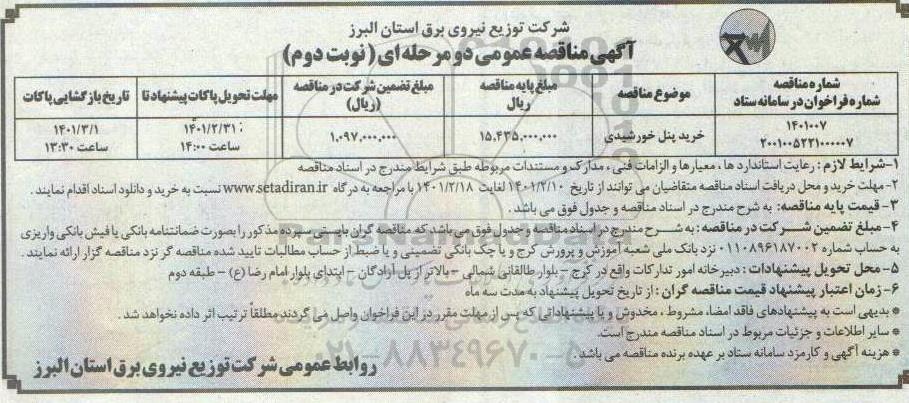 شرکت توزیع نیروی برق استان البرز
آگهی مناقصه عمومی دو مرحله ای (نوبت دوم)
شماره مناقصه
شماره فراخوان در سامانه ستاد
موضوع مناقصه
مبلغ پایه مناقصه
ریال
مبلغ تضمین شرکت در مناقصه
(ریال)
مهلت تحویل پاکات پیشنهاد تا
تاریخ بازگشایی پاکات
۱۴۰۱۰۰۷
۲۰۰۱۰۰۵۲۲۱۰۰۰۰۰۷
خرید پنل خورشیدی
۱۵,۴۳۵,۰۰۰,۰۰۰
۱,۰۹۷,۰۰۰,۰۰۰
۱۴۰۱/۲/۳۱
ساعت ۱۴:۰۰
۱۴۰۱/۳/۱
ساعت ۱۳:۳۰
۱-شرایط لازم : رعایت استاندارد ها ، معیارها و الزامات فنی ، مدارک و مستندات مربوطه طبق شرایط مندرج در اسناد مناقصه
۲-مهلت خرید و محل دریافت اسناد مناقصه متقاضیان می توانند از تاریخ ۱۴۰۱/۲/۱۰ لغایت ۱۴۰۱/۲/۱۸ با مراجعه به درگاه www.setadiran.ir نسبت به خرید و دانلود اسناد اقدام نمایند .
۳- قیمت پایه مناقصه: به شرح مندرج در اسناد مناقصه و جدول فوق می باشد .
۴- مبلغ تضمین شرکت در مناقصه: به شرح مندرج در اسناد مناقصه و جدول فوق می باشد که مناقصه گران بایستی سپرده مذکور را بصورت ضمانتنامه بانکی یا فیش بانکی واریزی
به حساب شماره ۰۱۱۰۸۹۶۱۸۷۰۰۲ نزد بانک ملی شعبه آموزش و پرورش کرج و یا چک بانکی تضمینی و یا ضبط از حساب مطالبات تایید شده مناقصه گر نزد مناقصه گزار ارائه نمایند .
۵- محل تحویل پیشنهادات : دبیرخانه امور تدارکات واقع در کرج - بلوار طالقانی شمالی - بالاتر از پل آزادگان - ابتدای بلوار امام رضا (ع) - طبقه دوم
۶- زمان اعتبار پیشنهاد قیمت مناقصه گران : از تاریخ تحویل پیشنهاد به مدت سه ماه
* بدیهی است به پیشنهادهای فاقد امضا، مشروط ، مخدوش و یا پیشنهاداتی که پس از مهلت مقرر در این فراخوان واصل می گردند مطلقاً ترتیب اثر داده نخواهد شد .
* سایر اطلاعات و جزئیات مربوط در اسناد مناقصه مندرج است.
* هزینه آگهی و کارمزد سامانه ستاد بر عهده برنده مناقصه می باشد .
۰۲۱-۸۸۳۴۹۶۷۰-۵
روابط عمومی شرکت توزیع نیروی برق استان البرز